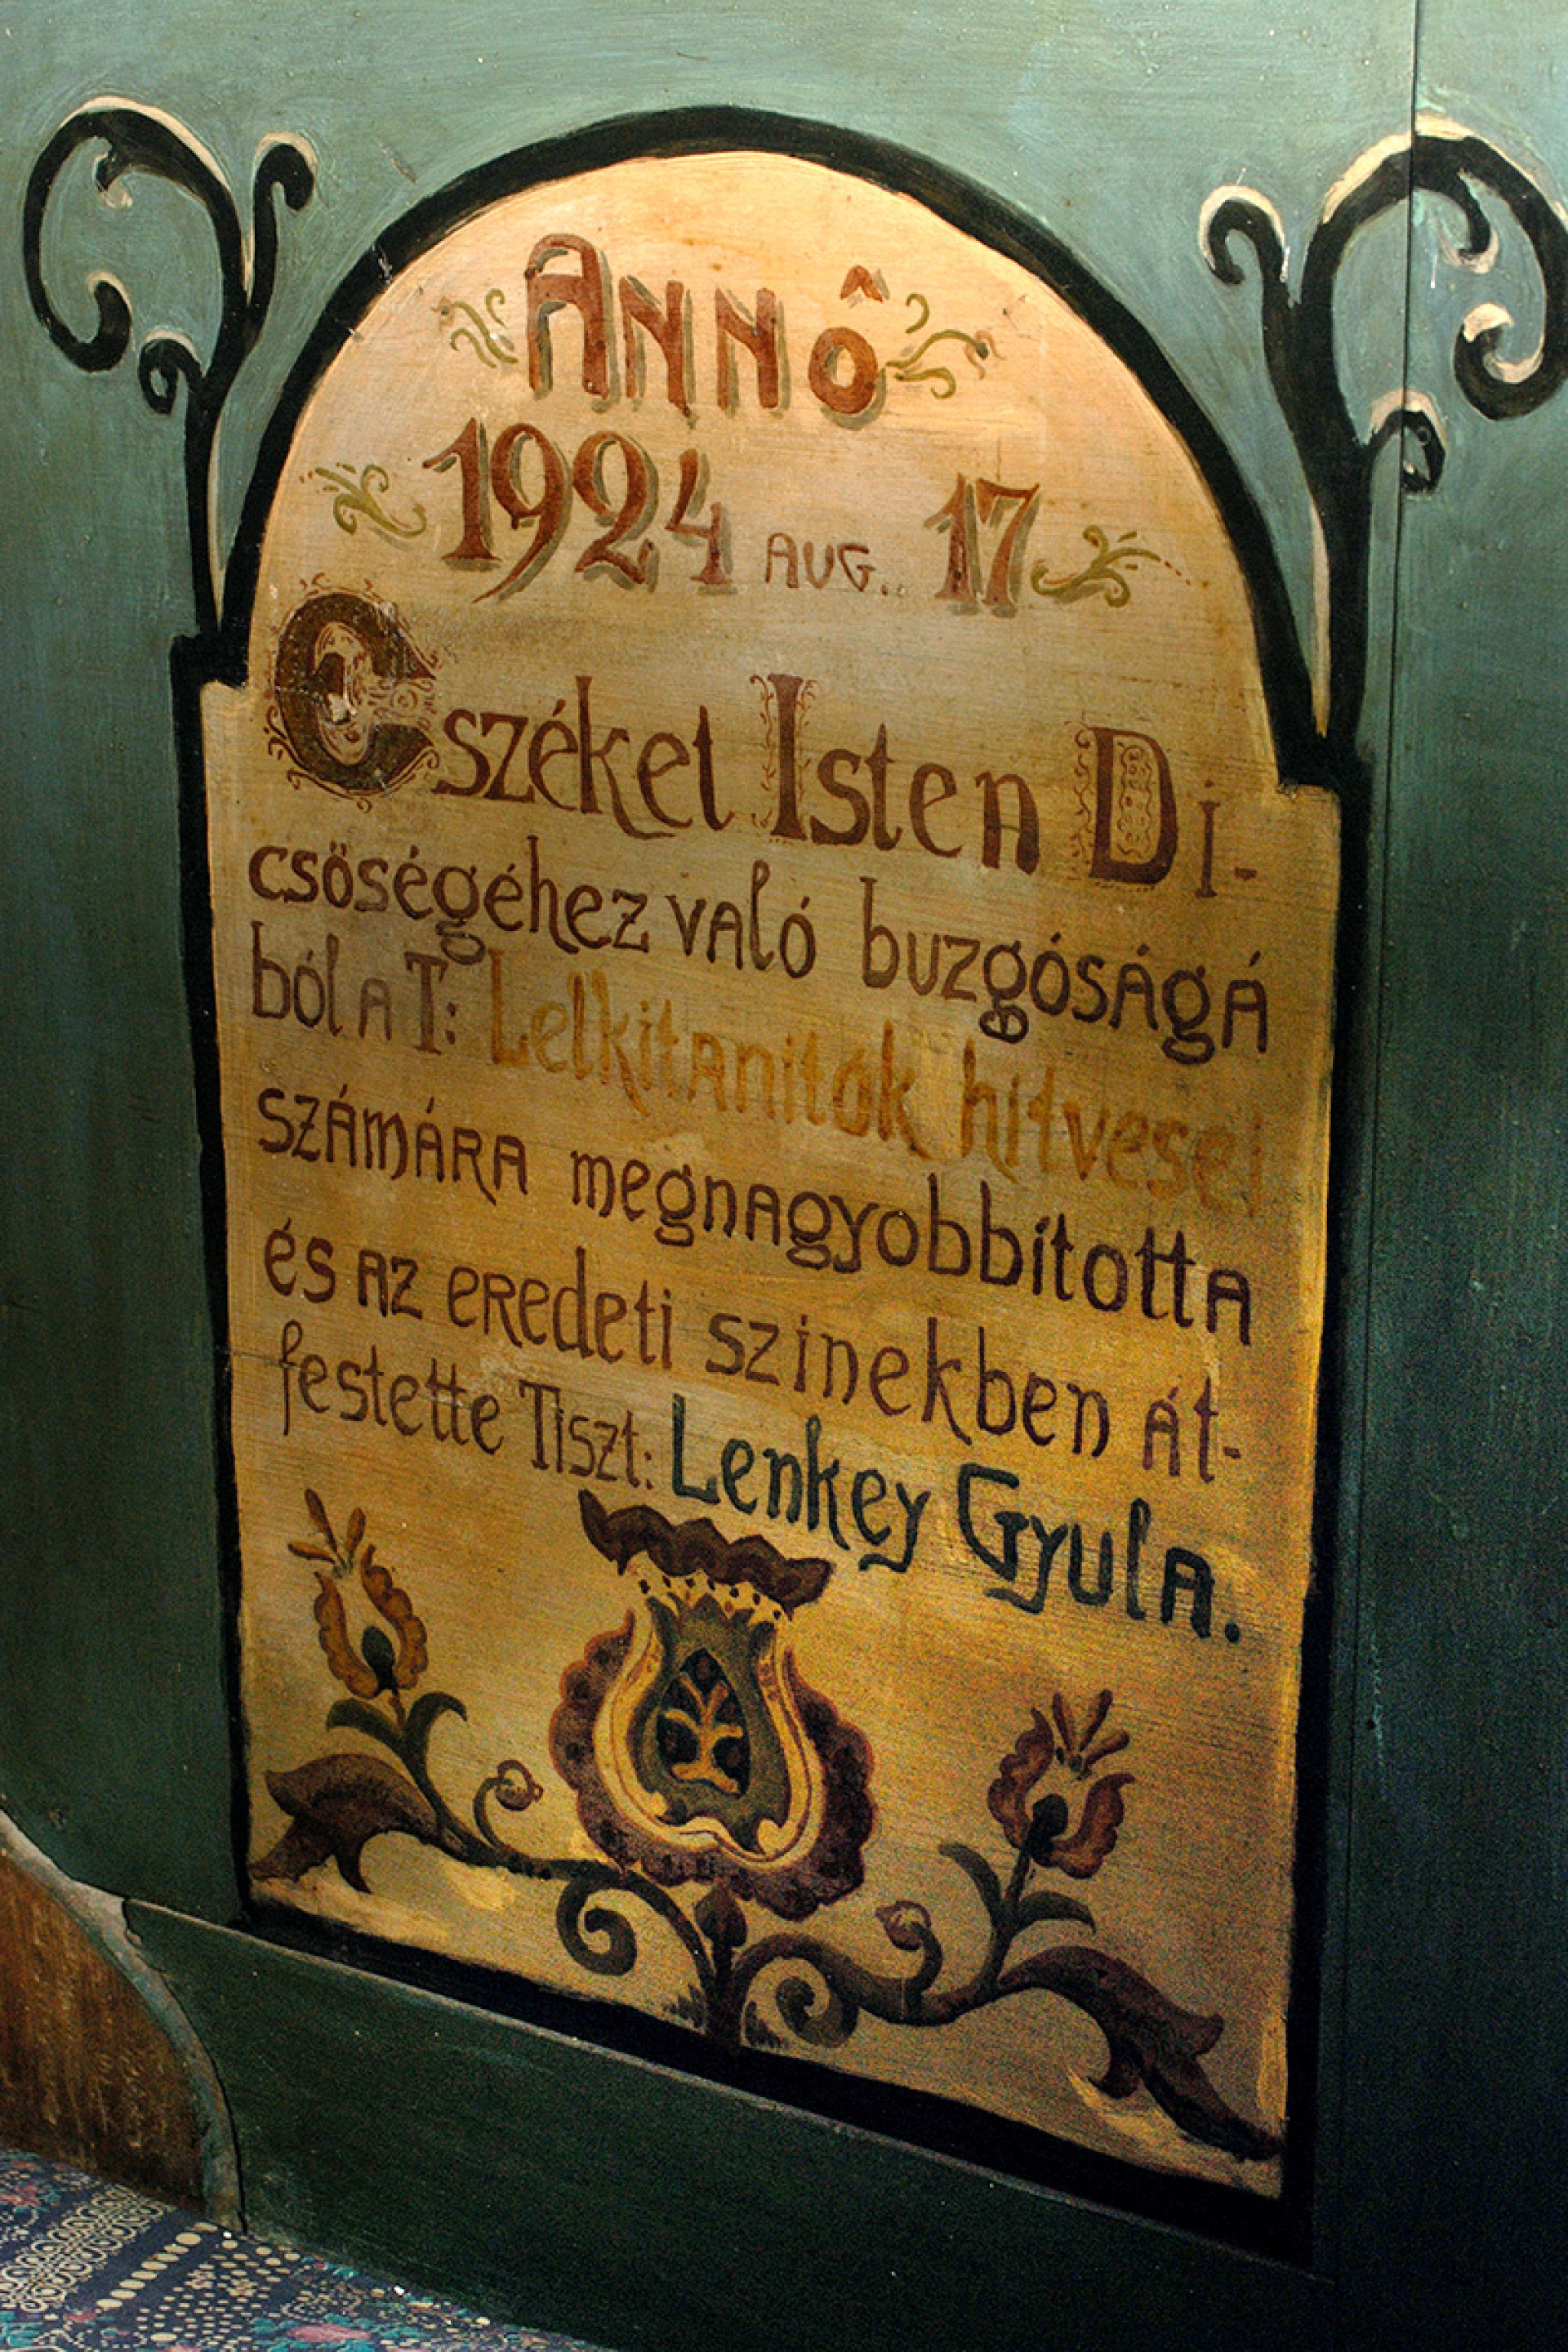 Annô
1924 Aug. 17
Eszéket Isten Di-
csöségéhez való buzgóságá
ból a T: Lelkitanitók hitvesei
számára megnagyobbitotta
és az eredeti szinekben át-
festette Tiszt: Lenkey Gyula.